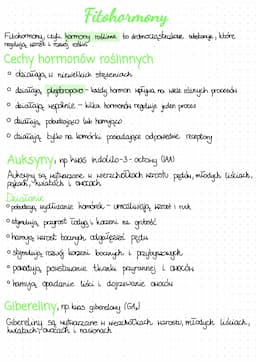 Fitohormony
Fitohormony, czyli hormony roślinne to drobnocząsteczkowe substancje, które
regulują wzrost i rozwój roślin
Cechy hormonów roślinnych
• działają w niewielkich stężeniach
• działają plejotropowo - każdy hormon wpływa na wiele różnych procesów
• działają wspólnie - kilka hormonów reguluje jeden proces
• działają pobudzająco lub hamująco
• działają tylko na komórki posiadające odpowiednie receptory
Auksyny, np. kwas indolilo-3-octowy (IAA)
Auksyny są wytwarzane w wierzchołkach wzrostu pędów, młodych liściach,
pąkach, kwiatach i owocach
Działanie
• pobudzają wydłużanie komórek - umożliwiają wzrost i ruch
• stymulują przyrost łodyg i korzeni na grubość
• hamują wzrost bocznych odgałęzień pędu
• stymulują rozwój korzeni bocznych i przybyszowych
• powodują powstawanie tkanki przyrannej i owoców
• hamują opadanie liści i dojrzewanie owoców
Gibereliny, np. kwas giberelowy (GA₃)
Gibereliny są wytwarzane w wierzchołkach wzrostu, młodych liściach,
kwiatach, owocach i nasionach